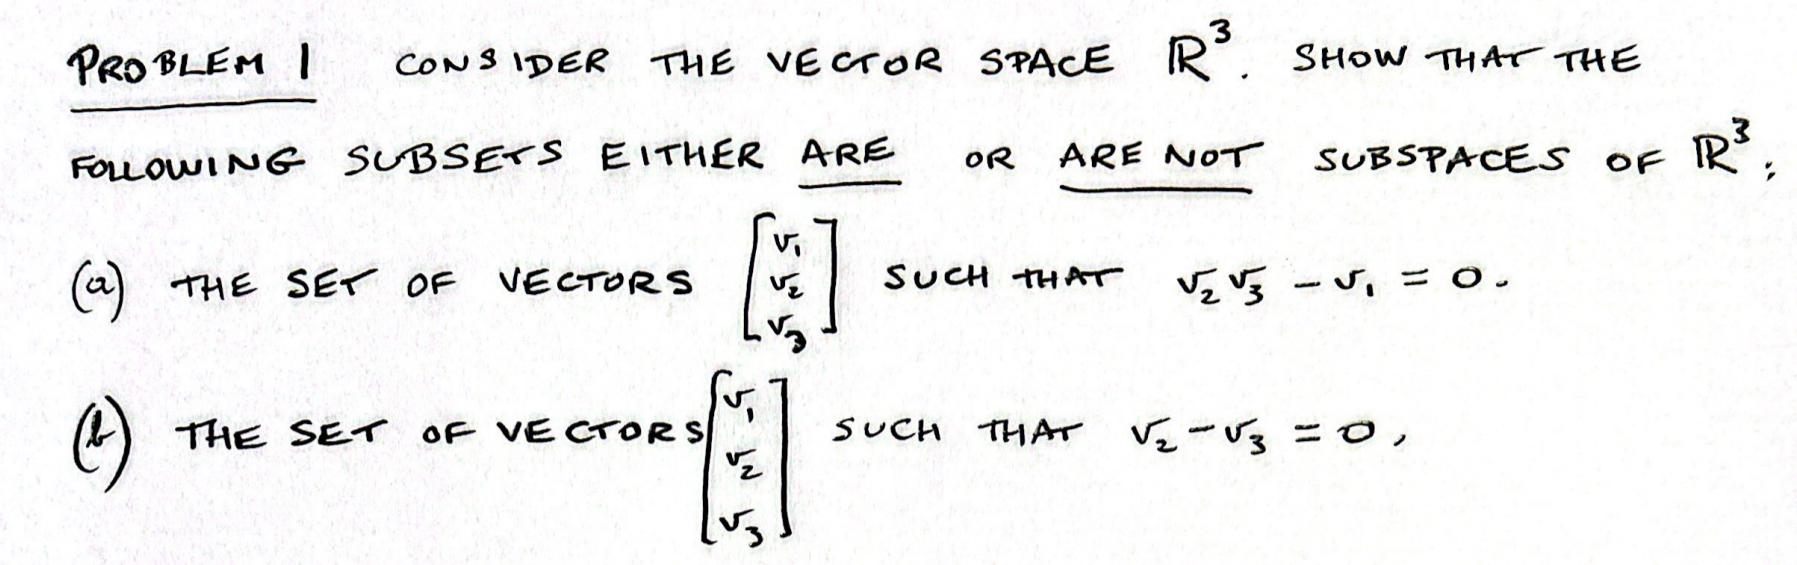 PROBLEM 1 CONSIDER THE VECTOR SPACE ℝ³. SHOW THAT THE
FOLLOWING SUBSETS EITHER ARE OR ARE NOT SUBSPACES OF ℝ³:
(a) THE SET OF VECTORS [v₁ v₂ v₃] SUCH THAT v₂v₃ - v₁ = 0.
(b) THE SET OF VECTORS [v₁ v₂ v₃] SUCH THAT v₂ - v₃ = 0.